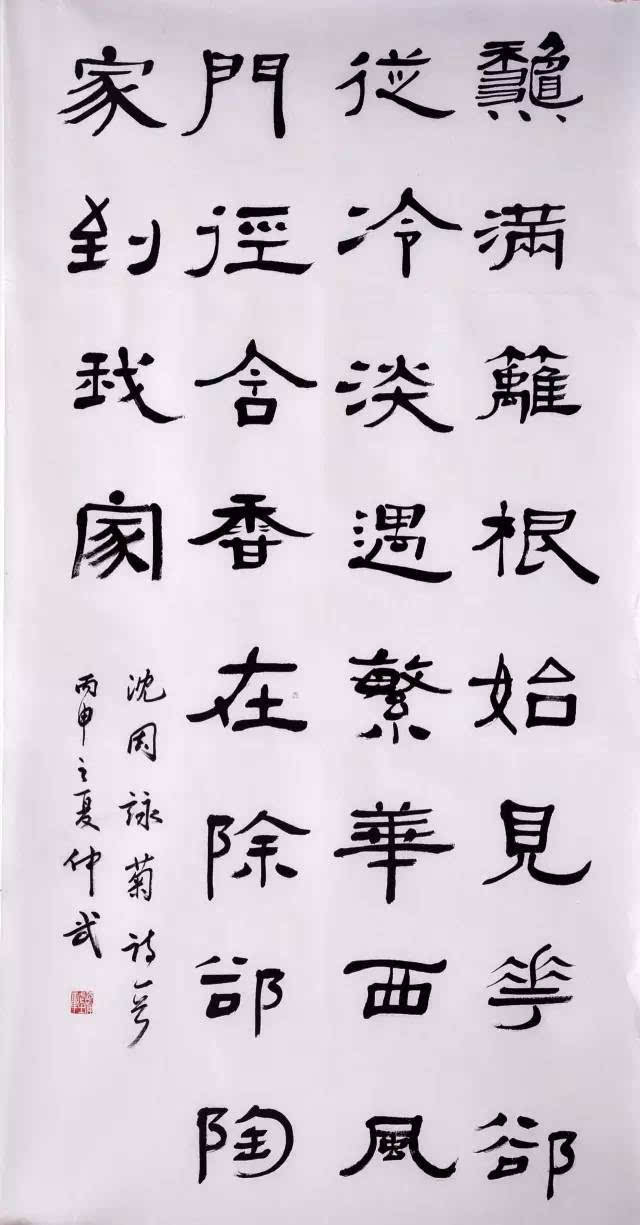 龝滿籬根始見花卻
從冷淡遇繁華西風
門徑含香在除卻陶
家到我家
沈周詠菊詩一首
丙申之夏仲武